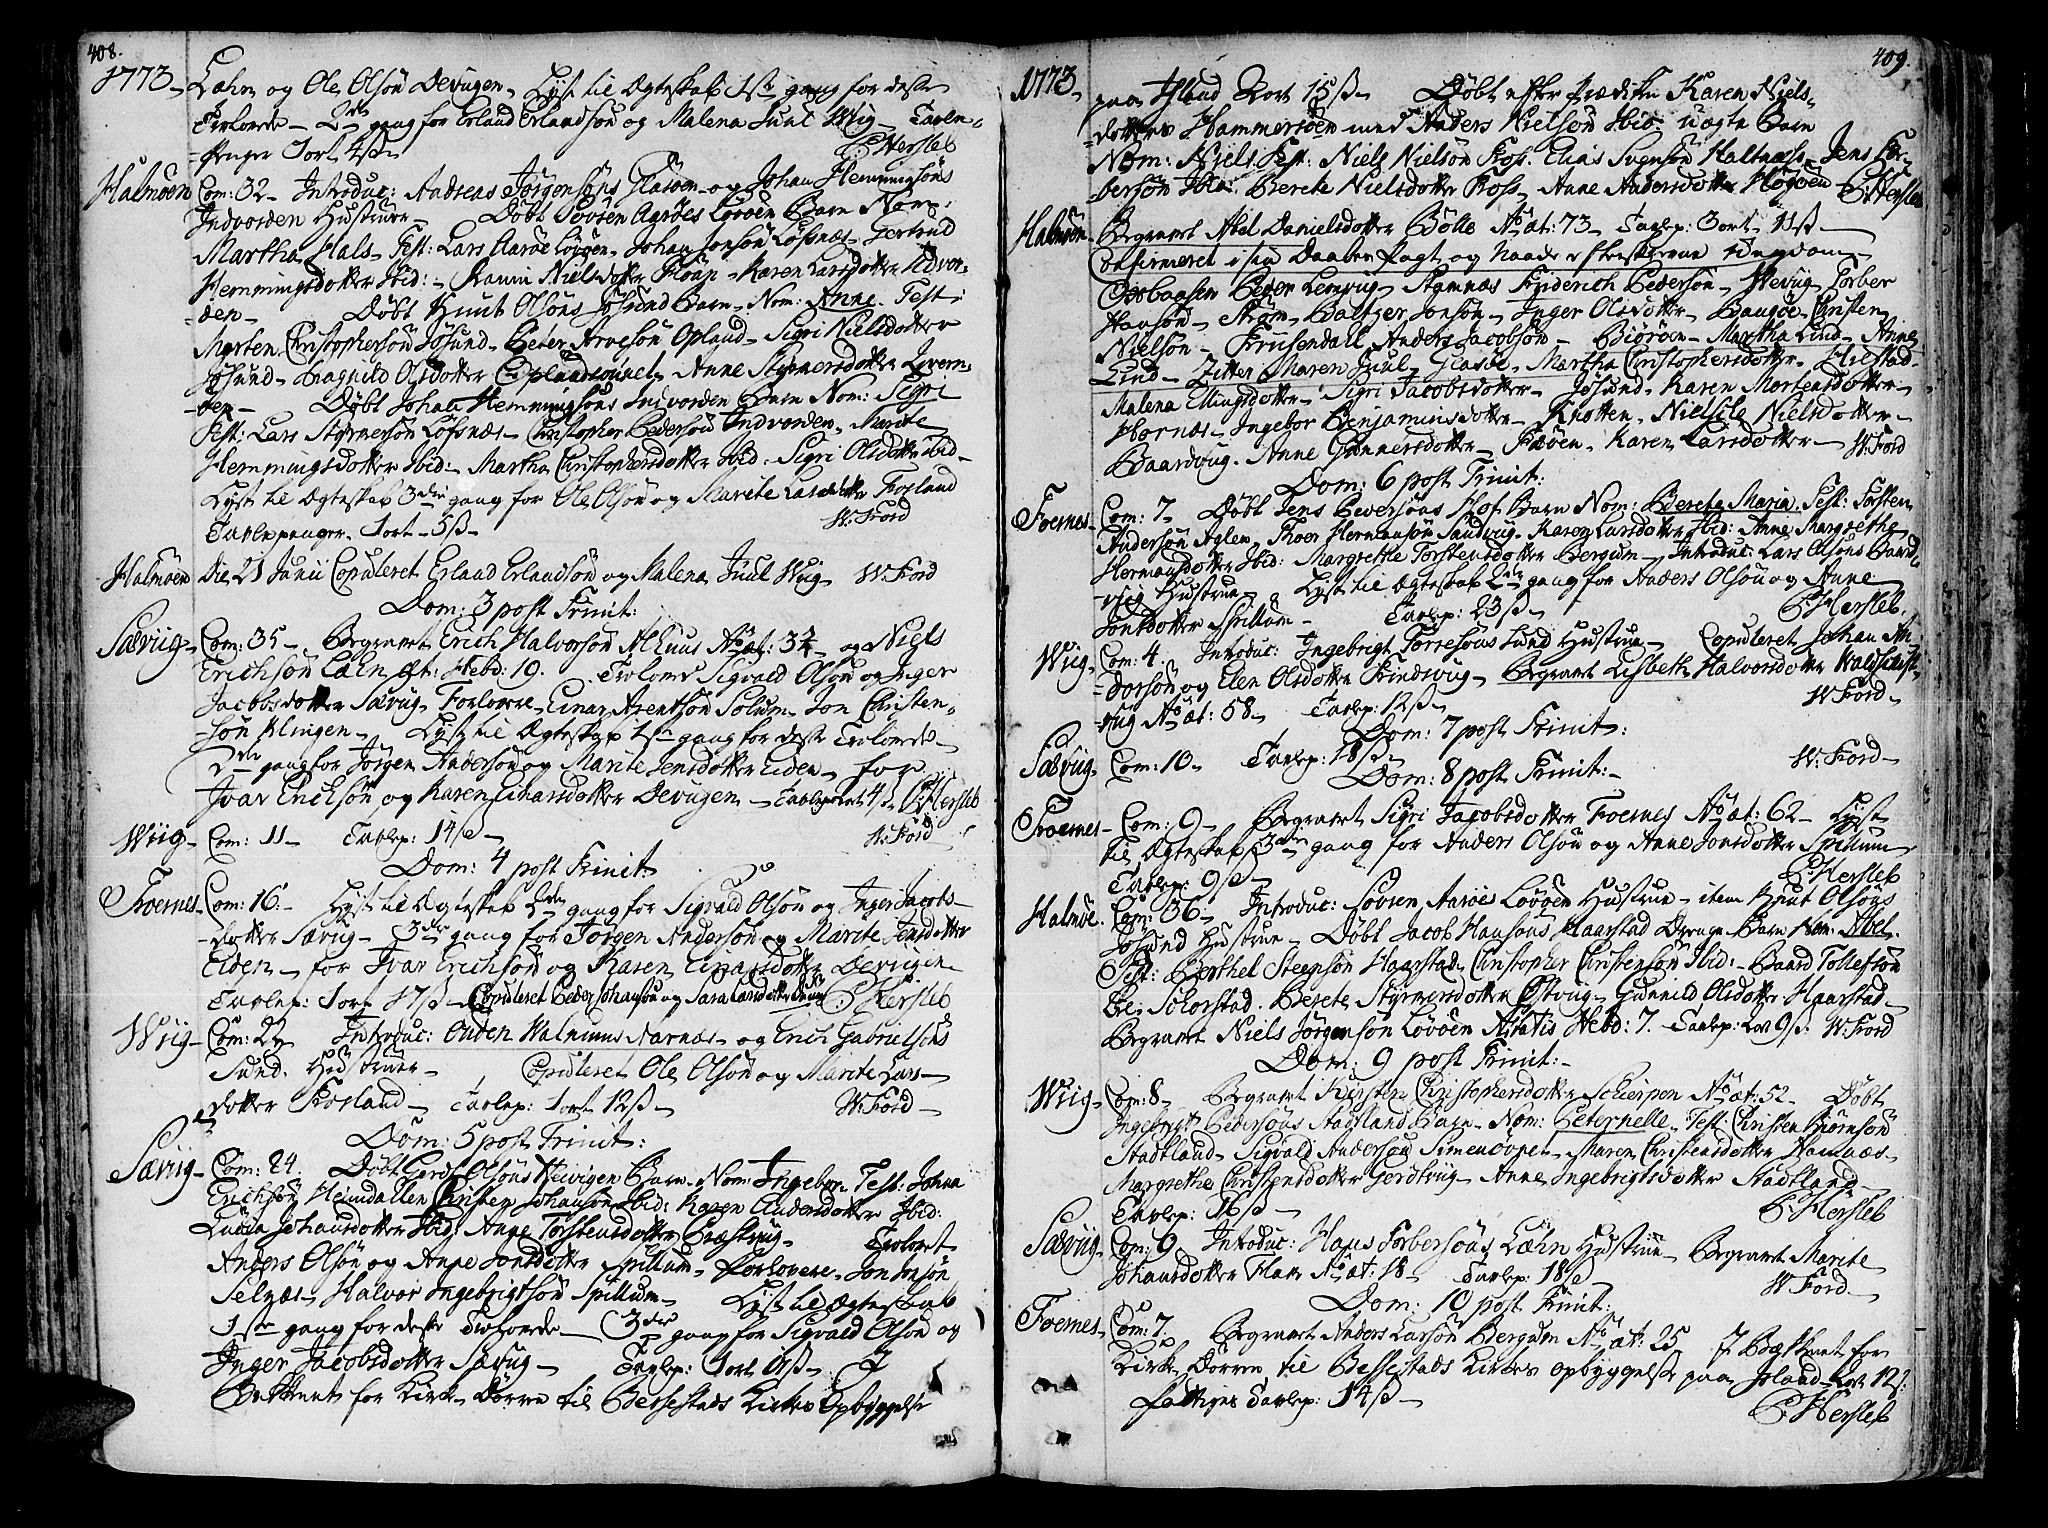 408.
1773 - Læhn og Ole Olsøn Devigen - Lyst til Ægteskab 1ste gang for desse
Trolovede - 2den gang for Erland Erlandsøn og Malena Juul Wiig - Tavle-
Penger 1 ort 4 ß - C. Hersleb
Halmøen Com: 32 - Introduc: Andreas Jørgensøns Glasøen - og Johan Hemmingsøns
Indvorden Hustruer - Døbt Søvren Aarøes Løvøen Barn Nom:
Martha Hals - Test: Lars Aarøe Løvøen - Johan Jonsøn Løfsnæs - Gertrud
Hemmingsdotter Ibid: - Karen Larsdotter Indvor-
den - Døbt Knut Olsøns Jøsund Barn - Nom: Anne. Test:
Morten Christophersøn Jøsund - Peter Arvesøn Opland - Sigri Nielsdotter
Jøsund - Lagnild Olsdotter - Anne Styrmersdotter
- Døbt Johan Hemmingsøns Indvorden Barn Nom: Sigri
Test: Lars Styrmersøn Løfsnæs - Christopher Pedersøn Indvorden - Marite
Hemmingsdotter Ibid: - Martha Christophersdotter Ibid: Sigri Olsdotter Ibid -
Lyst til Ægteskab 3die gang for Ole Olsøn og Marite Larsdotter Fosland
Tavlepenger. 1 ort - 5 ß - W. Ford
Halmøen Die 21 Junii Copuleret Erland Erlandsøn og Malena Juul Wiig - W. Ford
Dom: 3 post Trinit:
Sævig - Com: 35 - Begravet Erich Halvorsøn Ao æt: - og Niels
Erichsøn Læhn æt: Hebd: 19. Trolovet Sigvald Olsøn og Inger
Jacobsdotter Sævig - Forlovere - Einar Arentsøn Solum - Jon Christen-
søn Klingen - Lyst til Ægteskab 1ste gang for desse Trolovede -
2den gang for Jørgen Andersøn og Marite Jensdotter Eiden - for
Ivar Erichsøn og Karen Einarsdotter Devigen - Tavlep: 4 ß C. Hersleb
Wiig - Com: 11 - Tavlep: 14 ß - W. Ford
Dom: 4 post Trinit:
Foernes - Com: 16: - Lyst til Ægteskab 2den gang for Sigvald Olsøn og Inger Jacobs-
dotter Sævig - 3die gang for Jørgen Andersøn og Marite Jensdotter
Eiden - for Ivar Erichsøn og Karen Einarsdotter Devigen -
Tavlep: 1 ort 17 ß - Copuleret Peder Johansøn og Sara Larsdotter C. Hersleb
Wiig - Com: 22 Introduc: Ouden Walmuns Nærnæs - og Erich Gabrielsøns
Sund. Hustruer - Copuleret Ole Olsøn og Marite Lars-
dotter Fosland - Tavlep: 1 ort 12 ß - W. Ford -
Dom: 5 post Trinit:
Sævig - Com: 24. Døbt Olsøns Barn - Nom: Ingebor. Test: Johan
Erichsøn Heimdallen Christen Johansøn Ibid: Karen Andersdotter Ibid:
Lucia Johansdotter Ibid: Anne Torstensdotter - Trolovet
Anders Olsøn og Anne Jonsdotter Spillum - Forlovere - Jon Jonsøn
Selnæs - Halvor Ingebrigtsøn Spillum - Lyst til Ægteskab
1ste gang for desse Trolovede - 3die gang for Sigvald Olsøn og
Inger Jacobsdotter Sævig - Tavlep: 1 ort ß - I
Bekkenet for Kirke Dørren til Bessestads Kirkes Opbyggelse
409.
1773 - paa Island 2 ort 15 ß - Døbt efter Prædiken Karen Niels-
dotters Hammersøen med Anders Nielsøn Ibid uægte Barn
Nom: Niels Test: Niels Nielsøn Kos. Elias Svensøn Haltnæss - Jens Tor-
bersøn Ibid: Berete Nielsdotter Koss - Anne Andersdotter Høgøen - C. Hersleb
Halmøen - Begravet Abel Danielsdotter Bølle Ao æt: 73 - Tavlep: 3 ort - 11 ß -
Confirmeret i sin Daabes Pagt og Naade efterskrevne Ungdom -
Peder Lemvig - Stamnæs Friderich Pedersøn - Wævig - Torber
Hansøn - Strøm - Baltzer Jonsøn - Inger Olsdotter - Baugøe - Christen
Nielsøn - Krusendall Anders Jacobsøn - Biørøen - Martha Lund - Anne
Lund - Zitter Maren Juul - Glasøe - Martha Christophersdotter -
Malena Ellingsdotter - Sigri Jacobsdotter - Jøsund - Karen Mortensdotter -
Hornæs - Ingebor Benjaminsdotter - Knotten - Nielsile Nielsdotter -
Baardvug. Anne Gunnersdotter - Faøen - Karen Larsdotter - W. Ford
Dom: 6 post Trinit:
Foernes - Com: 7 - Døbt Jens Pedersøns Hof Barn Nom: Berete Maria. Test: Torsten
Andersøn Aglen - Thoer Hermansøn Sandvig - Karen Larsdotter Ibid: Anne Margrethe
Hermansdotter Ibid: Margrethe Torstensdotter Bergum - Introduc: Lars Olsøns Baard-
vig Hustrue - Lyst til Ægteskab 2den gang for Anders Olsøn og Anne
Jonsdotter Spillum - Tavlep: 23 ß - C. Hersleb.
Wiig - Com: 4. Introduc: Ingebrigt Torresøns Lund Hustrue - Copuleret Johan An-
dersøn og Elen Olsdotter Findvig - Begravet Lisbeth Halvorsdotter
vug Ao æt: 58 - Tavlep: 12 ß - W. Ford -
Dom: 7 post Trinit:
Sævig - Com: 10 - Tavlep: 18 ß - W. Ford -
Dom: 8 post Trinit: -
Foernes - Com: 9 - Begravet Sigri Jacobsdotter Foernes Ao æt: 62 - Lyst
til Ægteskab 3die gang for Anders Olsøn og Anne Jonsdotter Spillum
Tavlep: 9 ß - C. Hersleb
Halmøe. Com: 36 - Introduc: Søvren Aarøes Løvøen Hustrue - item Knut Olsøns
Jøsund Hustrue - Døbt Jacob Hansøns Haarstad Drenge Barn Nom: Abel.
Test: Berthel Steensøn Haarstad - Christopher Christensøn Ibid: - Baard Tollefsøn
Schorstad. Berete Styrmersdotter Østvig - Gunnild Olsdotter Haarstad -
Begravet Niels Jørgensøn Løvøen Ætatis Hebd: 7. Tavlep: 9 ß: W. Ford
Dom: 9 post Trinit: -
Wiig - Com: 8 - Begravet Kirsten Christophersdotter Scherpen Ao æt: 52 - Døbt
Ingebrigt Pedersøns Stadland Barn - Nom: Peternelle - Test: Christen Biørnsøn
Stadtland - Sigvald Andersøn - Maren Christensdotter Hamnæs -
Margrethe Christensdotter - Anne Ingebrigtsdotter Stadtland -
Tavlep: 16 ß - C. Hersleb
Sævig - Com: 9 Introduc: Hans Torbersøns Læhn Hustrue - Begravet Marite
Johansdotter Flak Ao æt: 18 - Tavlep: 18 ß - W. Ford -
Dom: 10 post Trinit:
Foernes - Com: 7 - Begravet Anders Larsøn Bergum Ao æt: 25 I Bekkenet for
Kirke Dørren til Bessestads Kirkes opbyggelse paa Island 12 ß:
fattiges Tavlep: 14 ß - C. Hersleb